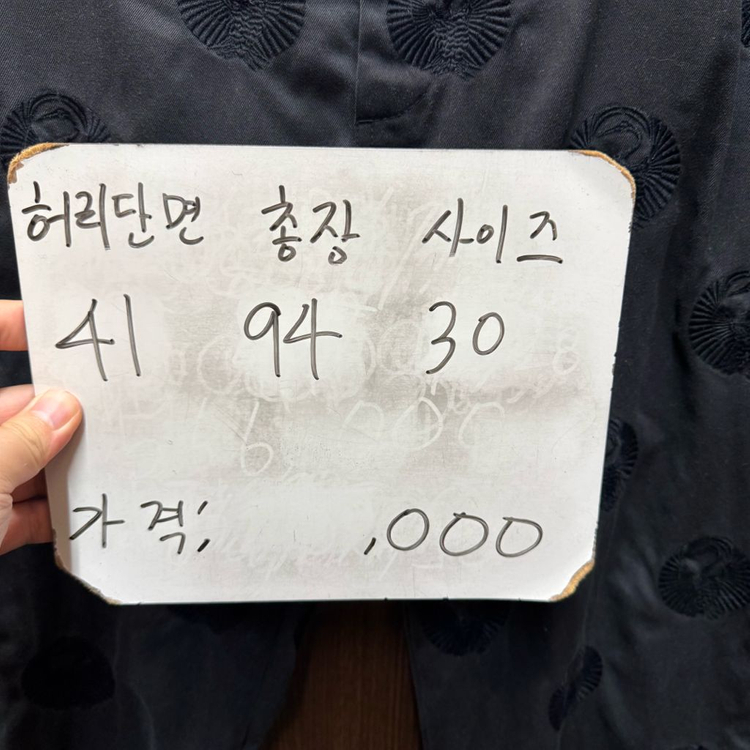 허리단면 총장 사이즈
41 94 30
가격: ,000